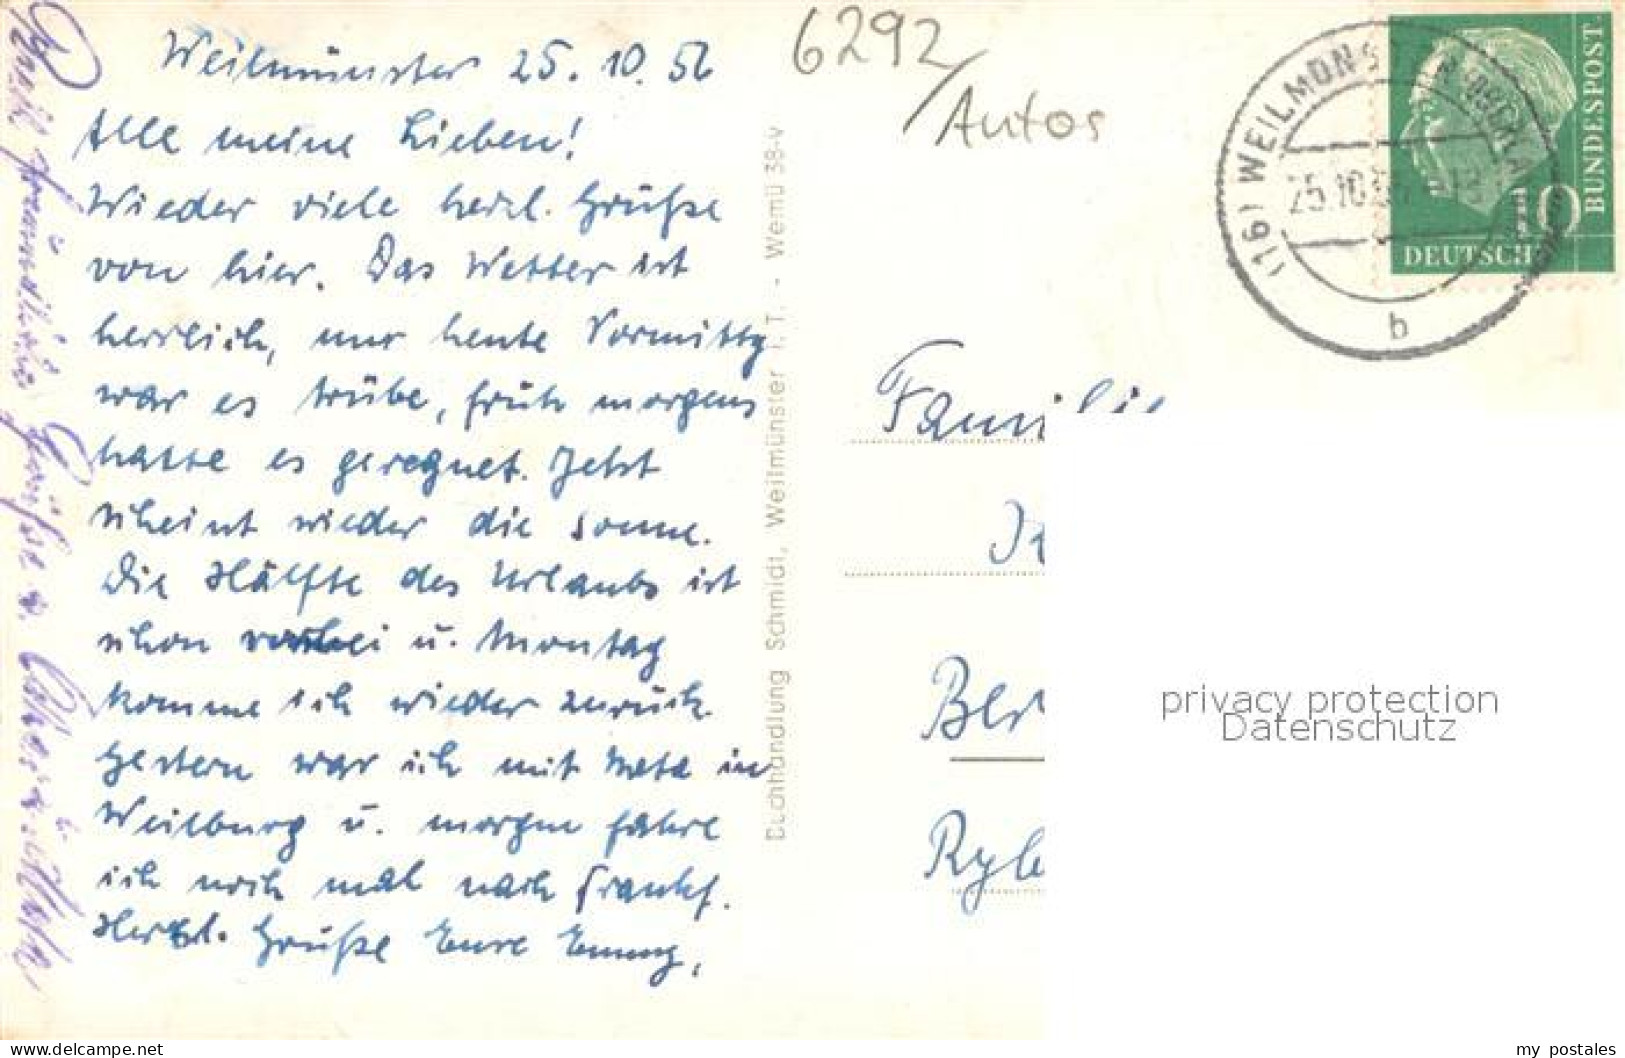 Weilmünster 25.10.56
Alle meine Lieben!
Wieder viele herzl. Grüße
von hier. Das Wetter ist
herrlich, nur heute Vormittg
war es trübe, früh morgens
hatte es geregnet. Jetzt
scheint wieder die Sonne.
Die Hälfte des Urlaubs ist
schon vorbei u. Montag
komme ich wieder zurück.
Gestern war ich mit Meta in
Weilburg u. morgen fahre
ich noch mal nach Frankf.
Herzl. Grüße Eure Emmy,
Grüße u.
Buchhandlung Schmidt, Weilmünster i. T. - Wemü 38-v
6292/
Autos
(16) WEILMÜNSTER
25.10.56
b
DEUTSCHE
BUNDESPOST
10
Familie
privacy protection
Datenschutz
my postales
www.delcampe.net